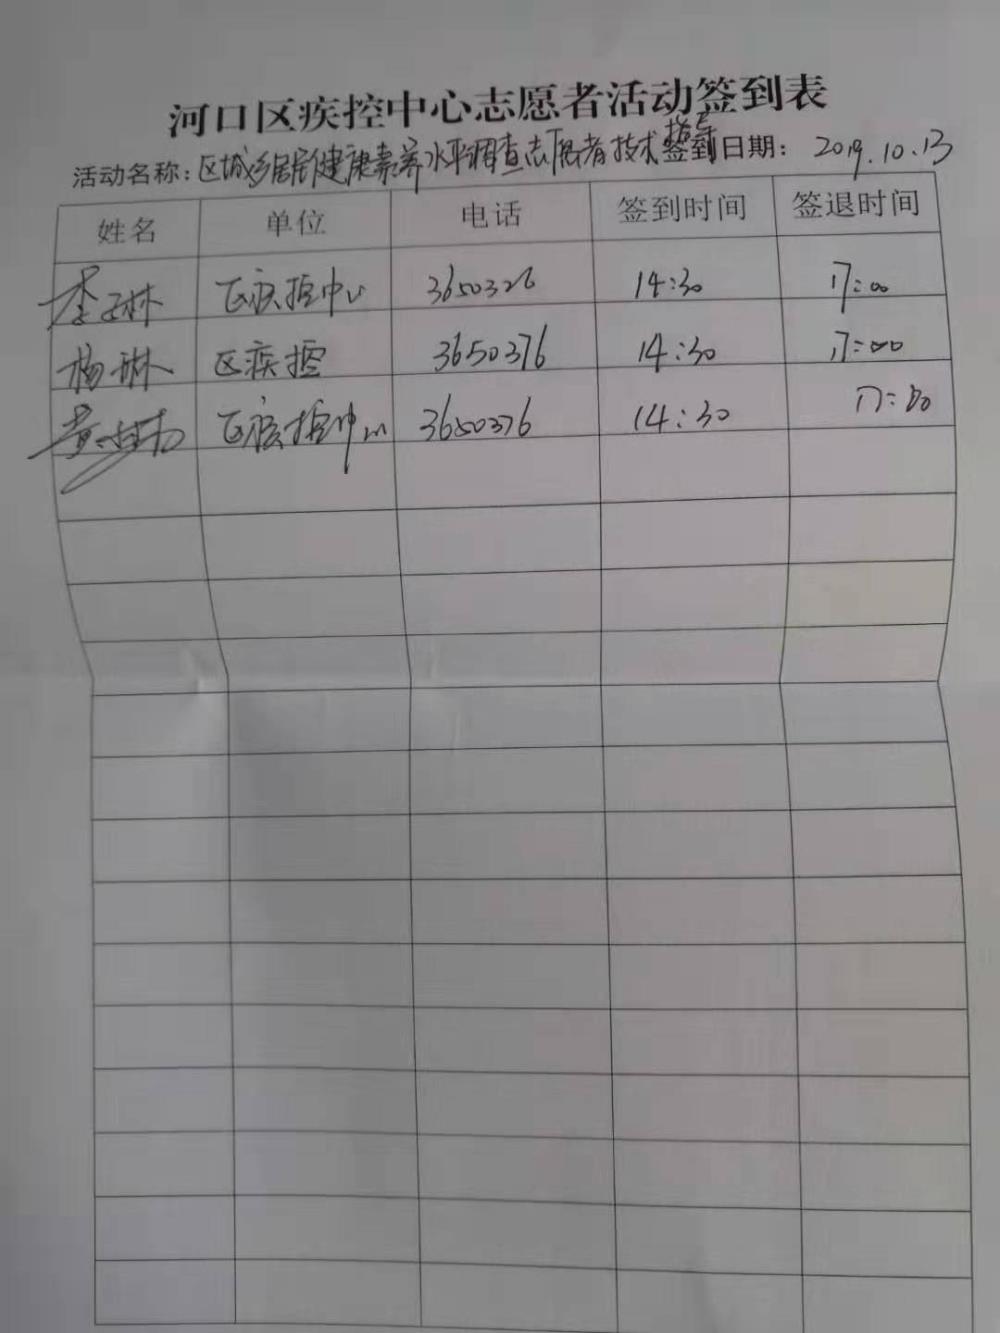 河口区疾控中心志愿者活动签到表
活动名称：区城乡居民健康素养水平调查志愿者技术指导 签到日期： 2019.10.13
姓名 单位 电话 签到时间 签退时间
区疾控中心 3650326 14:30 17:00
杨琳 区疾控 3650376 14:30 17:00
区疾控中心 3650376 14:30 17:00